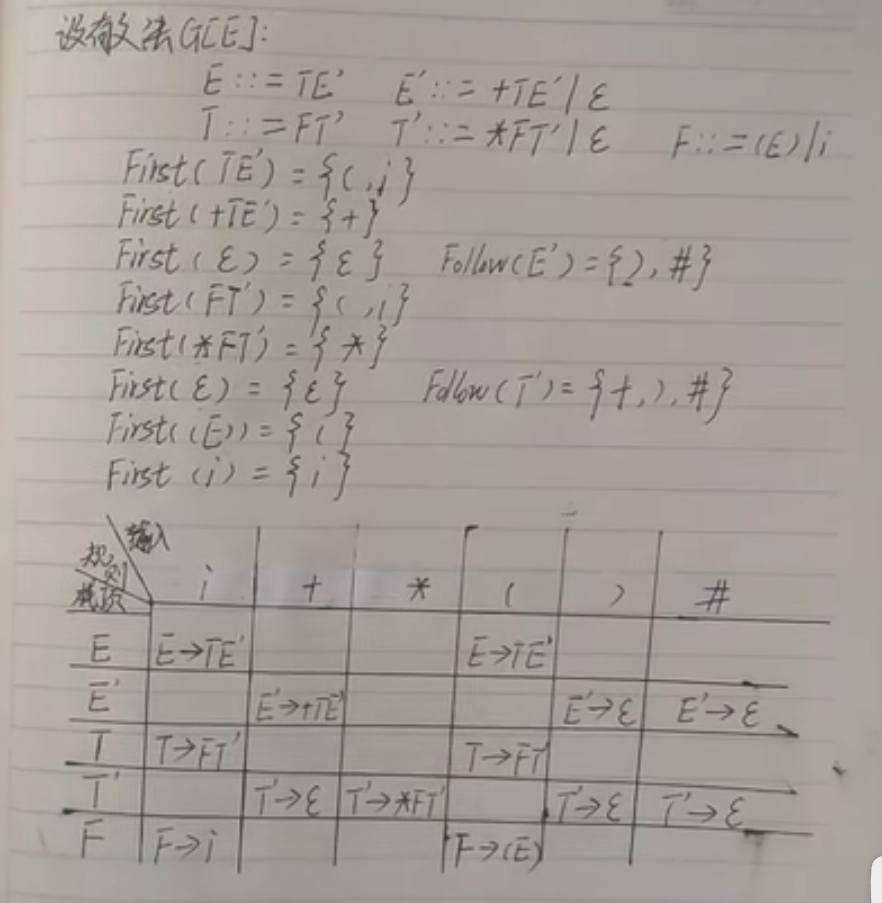 设有文法G[E]:
E::=TE' E'::=+TE'|ε
T::=FT' T'::=*FT'|ε F::=(E)|i
First(TE')={(,i}
First(+TE')={+}
First(ε)={ε} Follow(E')={),#}
First(FT')={(,i}
First(*FT')={*}
First(ε)={ε} Follow(T')={+,),#}
First((E))={(}
First(i)={i}
输入
规则
栈顶 i + * ( ) #
E E→TE' E→TE'
E' E'→+TE' E'→ε E'→ε
T T→FT' T→FT'
T' T'→ε T'→*FT' T'→ε T'→ε
F F→i F→(E)